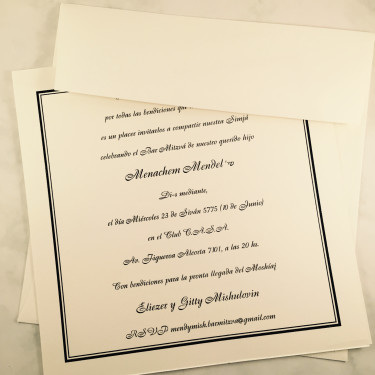 por todas las bendiciones que
es un placer invitarlos a compartir nuestra Simjá
celebrando el Bar Mitzvá de nuestro querido hijo
Menachem Mendel
Di-s mediante,
el día Miércoles 23 de Siván 5775 (10 de Junio)
en el Club C.A.S.A.
Av. Figueroa Alcorta 7101, a las 20 hs.
Con bendiciones para la pronta llegada del Moshíaj
Eliezer y Gitty Mishulovin
RSVP mendymish.barmitzva@gmail.com